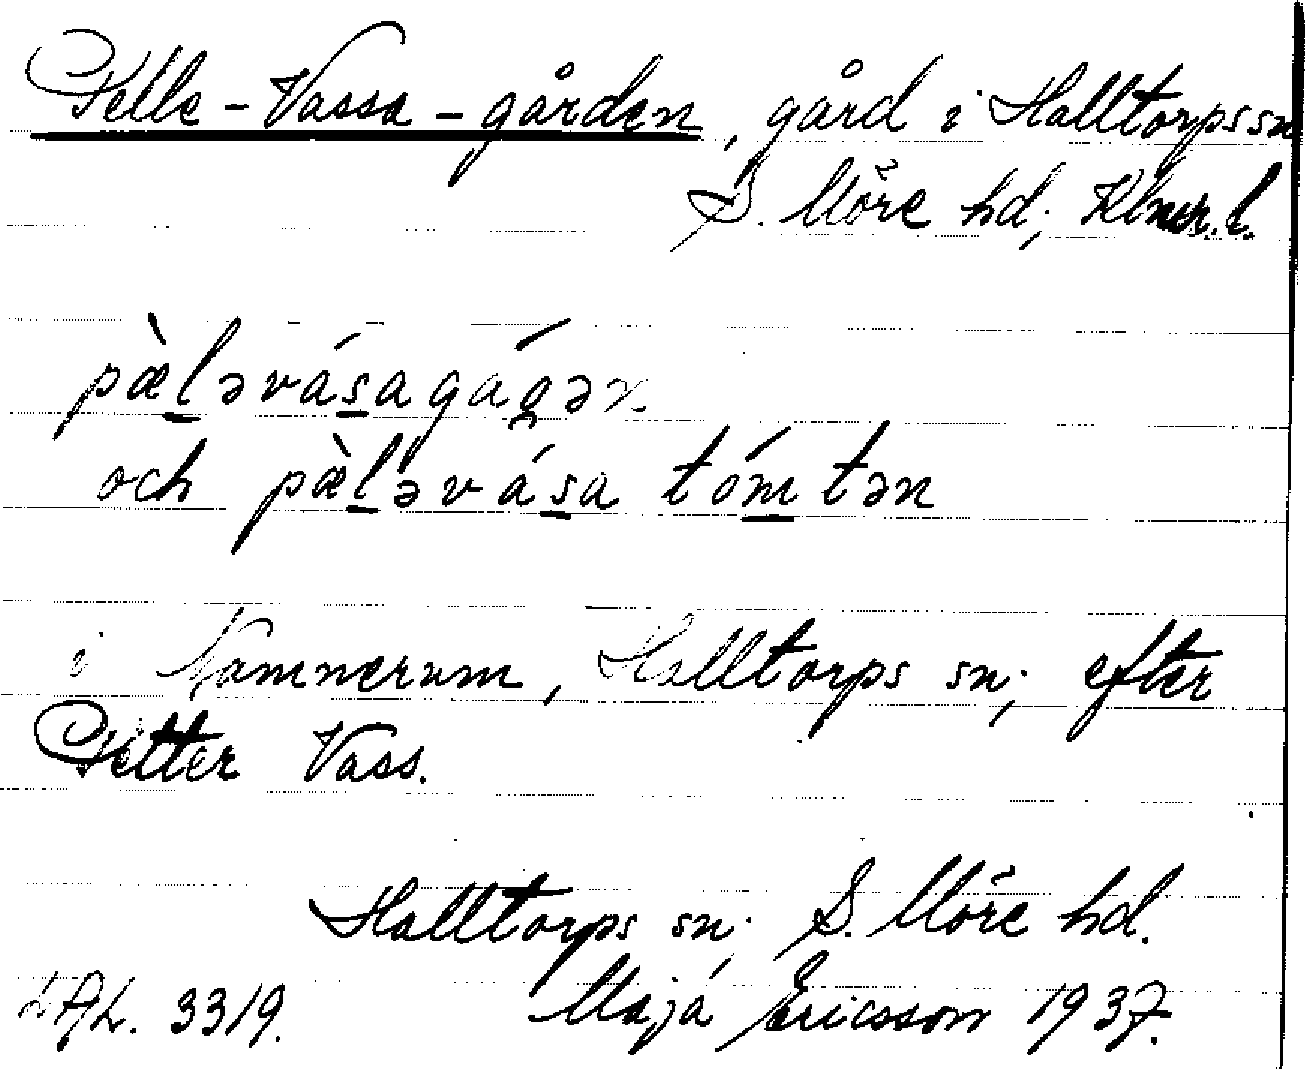 Pelle-Vassa-gården, gård i Halltorps sn
S. Möre hd; Klmr. l.
pæ̀l̲əvás̲agáqən
och pæ̀l̲əvás̲a tóm̲tən
i Namnerum, Halltorps sn; efter
Petter Vass.
Halltorps sn; S. Möre hd.
LAL. 3319. Maja Ericsson 1937.